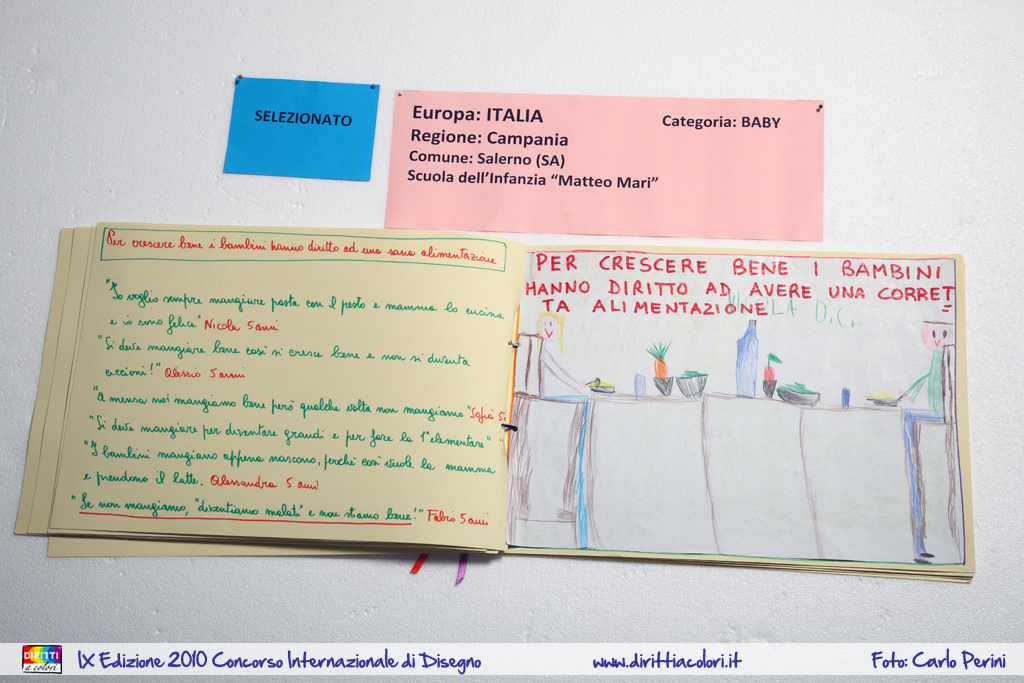 SELEZIONATO
Europa: ITALIA
Categoria: BABY
Regione: Campania
Comune: Salerno (SA)
Scuola dell'Infanzia "Matteo Mari"
Per crescere bene i bambini hanno diritto ad una sana alimentazione
"Io voglio sempre mangiare pasta con il pesto e mamma la cucina
e io sono felice" Nicola 5 anni
"Si deve mangiare bene così si cresce bene e non si diventa
ciccioni!" Alessio 5 anni
"A mensa noi mangiamo bene però qualche volta non mangiamo" Sofia 5
"Si deve mangiare per diventare grandi e per fare la 1ª elementare" "
"I bambini mangiano appena nascono, perchè così vuole la mamma
e prendono il latte. Alessandra 5 anni
"Se non mangiamo, "diventiamo malati e non stiamo bene!" Fabio 5 anni
PER CRESCERE BENE I BAMBINI
HANNO DIRITTO AD AVERE UNA CORRET
TA ALIMENTAZIONE
D.C.
DIRITTI
a colori
IX Edizione 2010 Concorso Internazionale di Disegno
www.dirittiacolori.it
Foto: Carlo Perini